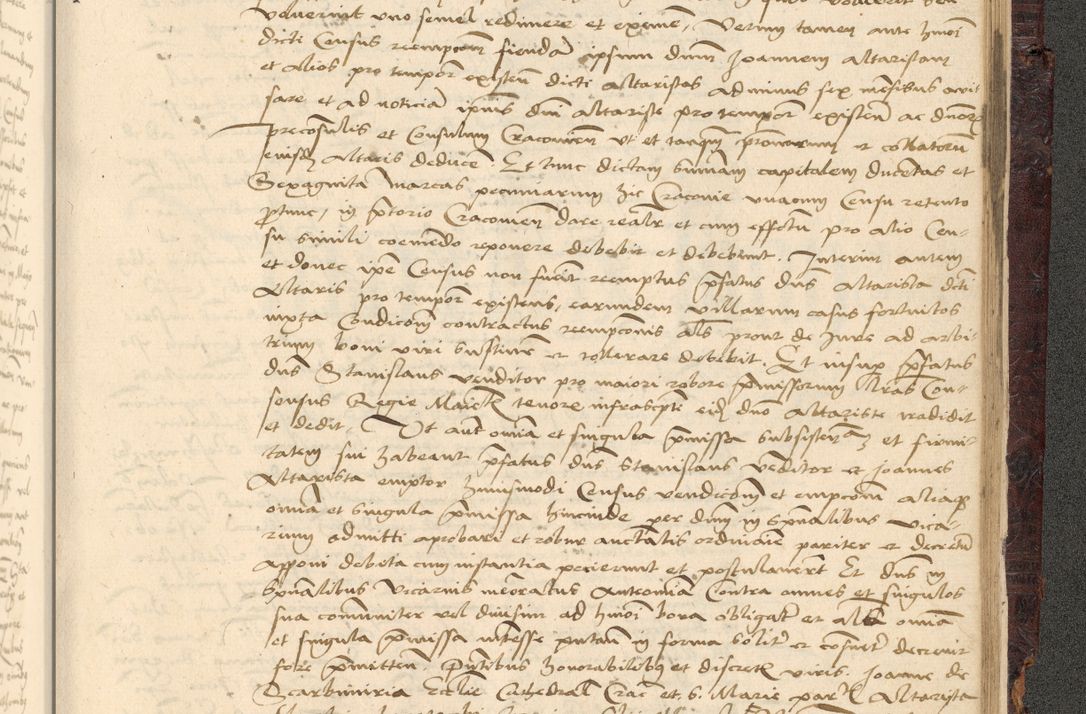 voverint uno semel redimere et eximere, Verum tamen ante hmoi
dicti Census reemptionem fiendam ipsum dnm Joannem altaristam
et alios pro tempore existen dicti altaristas ad minus sex mensibus avi
sare et ad noticiam ipius dni altariste pro tempore existen ac dnorum
preconsulis et Consulum Cracovien ut et tanquam patronorum et collatorum
eiusdem altaris deducere Et tunc dictam summam capitalem ducentas et
Sexaginta marcas pecuniarum hic Cracovie unacum Censu retento
ptunc, in pretorio Cracovien dare realiter et cum effectu pro alio Cen-
su simili coemendo reponere debebit et debebunt. Interim autem
et donec ipse Census non fuerit reemptus prefatus dns Altarista dicti
Altaris pro tempore existens, earundem villarum casus fortuitos
iuxta Condicionem contractus reempcionis als prout de Iure ad arbi-
trium boni viri sustinere et tollerare debebit. Et insuper prefatus
dns Stanislaus venditor pro maiori robore premissorum lras Con-
sensus Regie Maiestatis tenore infrascripti eidem dno Altariste tradidit
et dedit, Ut autem omnia et singula premissa subsistentiam et firmi-
tatem sui habeant prefatus dns Stanislaus venditor et Joannes
Altarista emptor huiusmodi Census vendicionem et empcionem aliaque
omnia et singula premissa hincinde per dnm in spiritualibus vica-
rium admitti aprobari et robur auctoritatis ordinarie pariter et decretum
apponi debita cum instantia pecierunt et postularunt Et dns in
Spiritualibus Vicarius memoratus Antonium Contra omnes et singulos
sua communiter vel divisim ad hmoi bona obligata et alia omnia
et singula premissa interesse putantes in forma solita et consueta decrevit
fore premitten. Presentibus honorabilibus et discretis viris. Joanne de
Scarbimiria Ecclie Cathedral Crac et S. Marie par Altarista